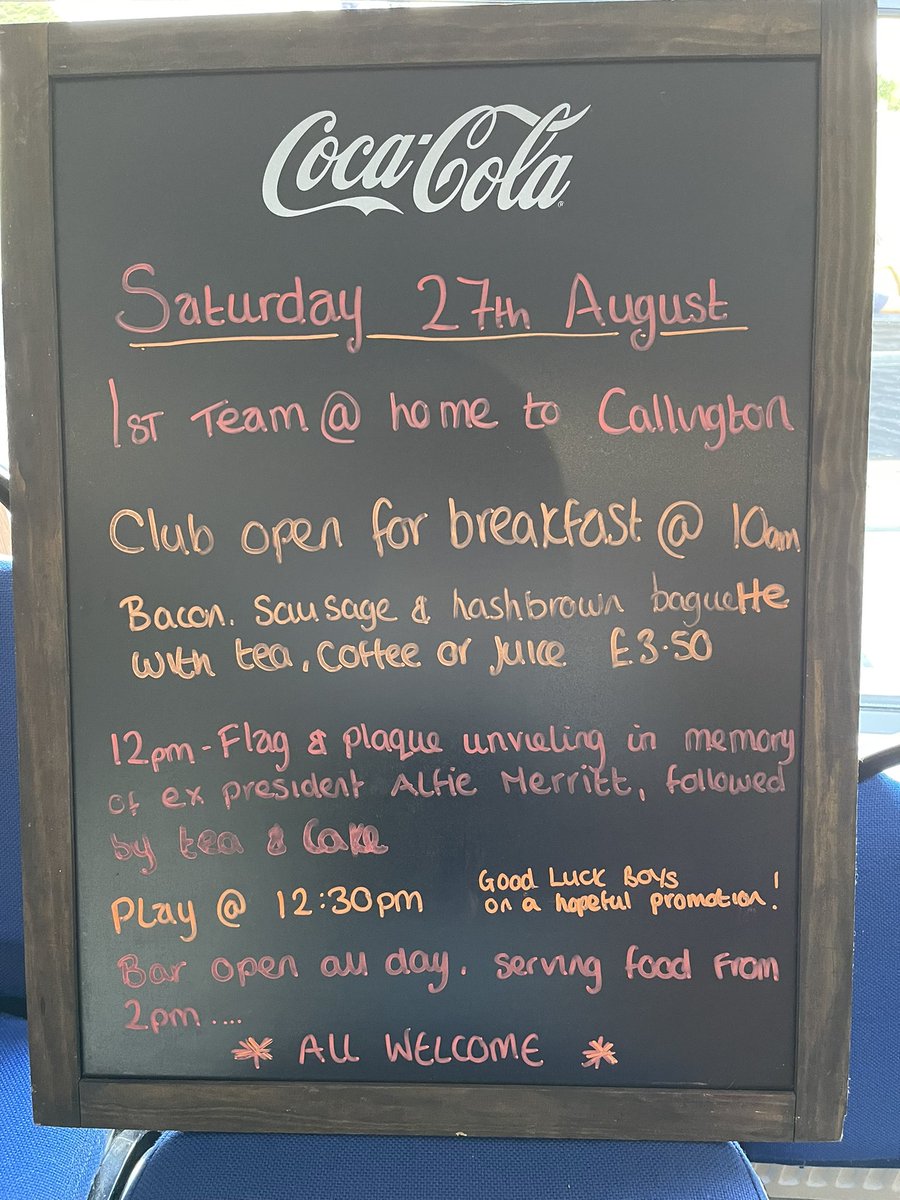 Coca-Cola
Saturday 27th August
1st Team @ home to Callington
Club open for breakfast @ 10am
Bacon. Sausage & hashbrown baguette
with tea, coffee or juice £3.50
12pm - Flag & plaque unvieling in memory
of ex president Alfie Merritt, followed
by tea & Cake
Play @ 12:30pm
Good Luck Boys
on a hopeful promotion!
Bar open all day. serving food from
2pm ....
* ALL WELCOME *